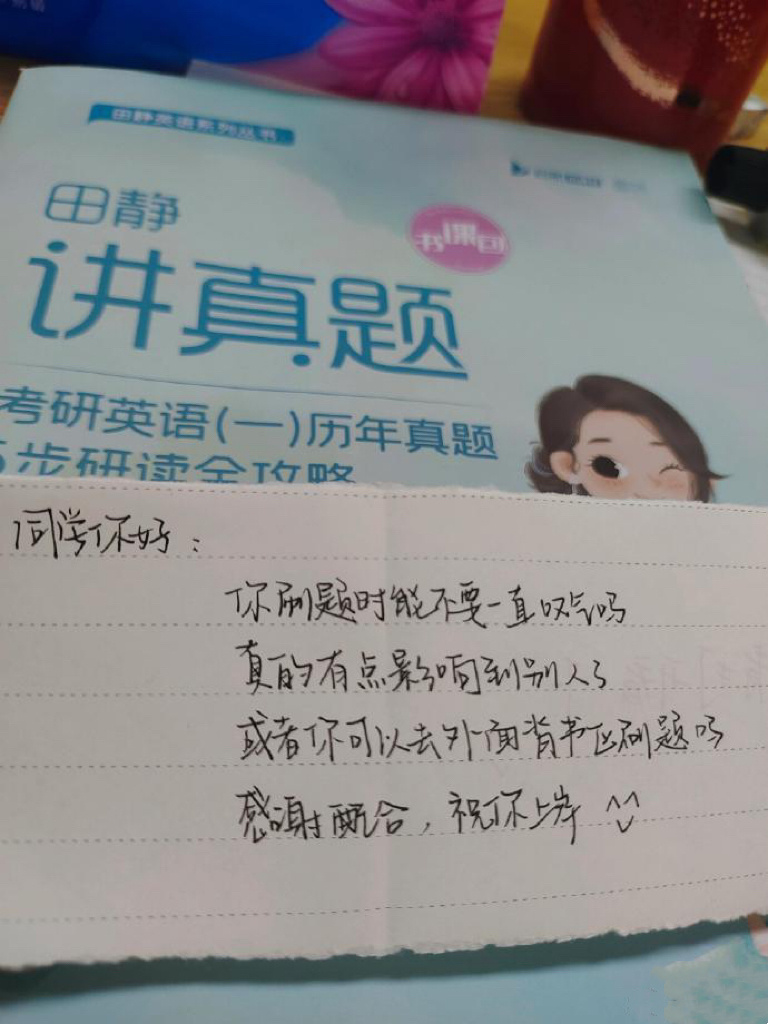 田静英语系列丛书
田静
书课包
讲真题
考研英语(一)历年真题
步研读全攻略
同学你好：
你刷题时能不要一直叹气吗
真的有点影响到别人了
或者你可以去外面背书区刷题吗
感谢配合，祝你上岸 ^^